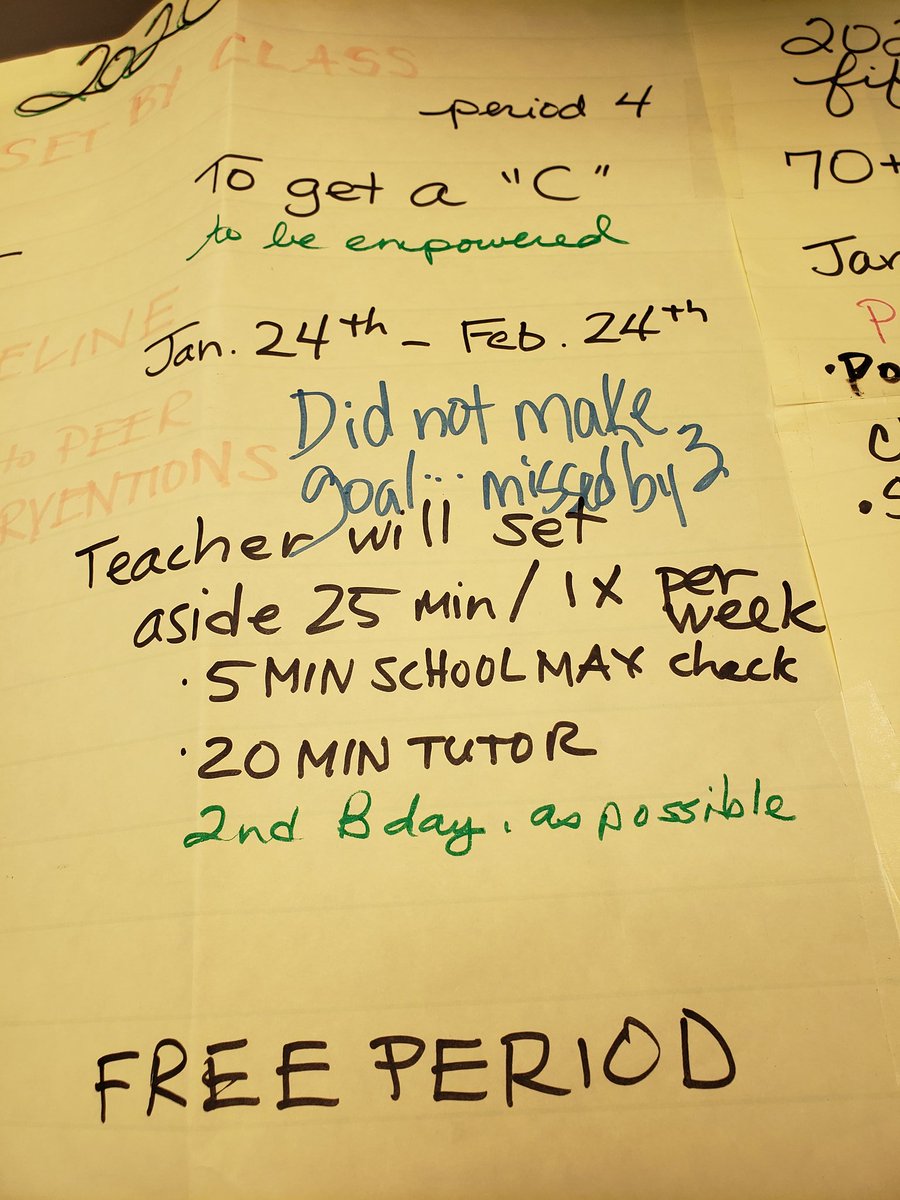 2020
SET BY CLASS
period 4
To get a "C"
to be empowered
Jan. 24th - Feb. 24th
Did not make
goal... missed by 3
Teacher will set
aside 25 min / 1X per
week
• 5 MIN SCHOOLMAX check
• 20 MIN TUTOR
2nd B day, as possible
FREE PERIOD
ELINE
to PEER
RVENTIONS
202
fit
70+
Jan
P
• Po
C
• S